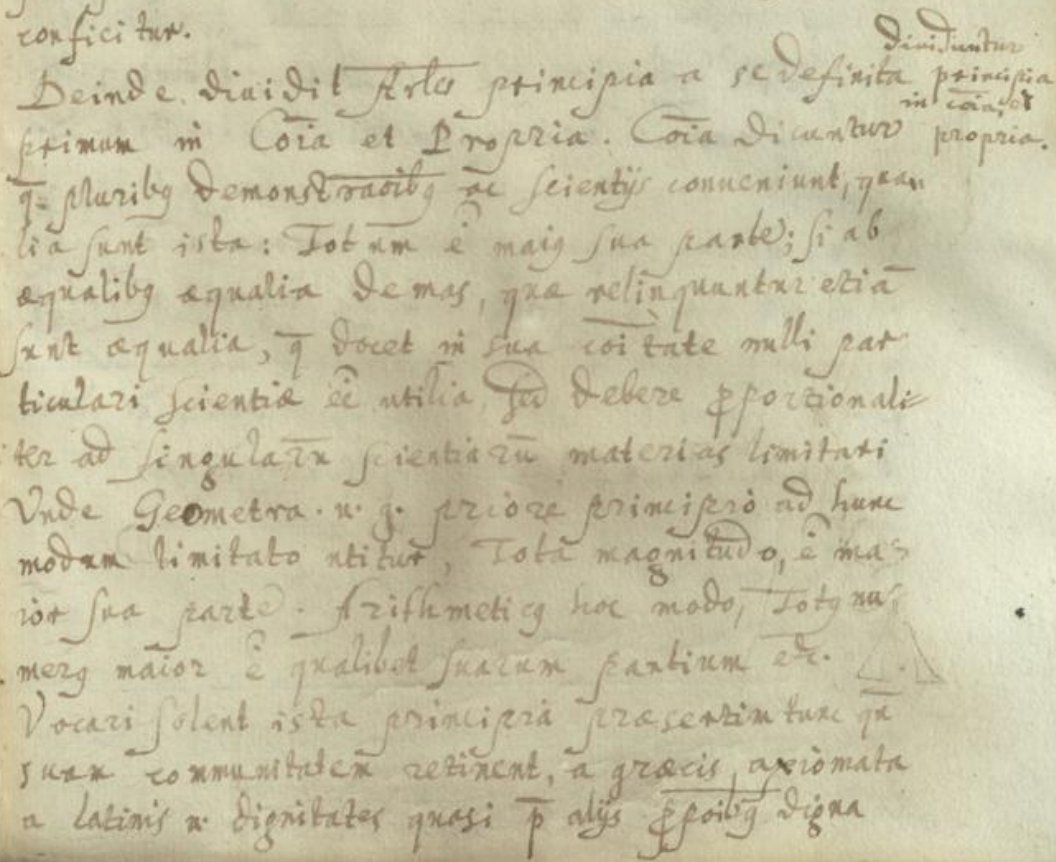 conficitur.
Deinde diuidit Arles principia a se definita
primum in Cōia et Propria. Cōia dicuntur
q̄ pluribꝯ demonstraōibꝯ ac scientijs conueniunt, qua
lia sunt ista: Totum ē maiꝯ sua parte; si ab
æqualibꝯ æqualia demas, quæ relinquuntur etiā
sunt æqualia, q̄ docet in sua cōitate nulli par
ticulari scientiæ eē utilia, sed debere ꝓportionali
ter ad singularū scientiarū materias limitari
Vnde Geometra v. g. priore principio ad hunc
modum limitato utitur, Tota magnitudo, ē ma
ior sua parte. Arithmeticꝯ hoc modo, Totꝯ nu
merꝯ maior ē qualibet suarum partium etc.
Vocari solent ista principia præsertim tunc qn̄
suam communitatem retinent, a græcis axiomata
a latinis v. dignitates quasi p̄ alijs ꝓpoībꝯ digna
diuiduntur
principia
in cōia, et
propria.